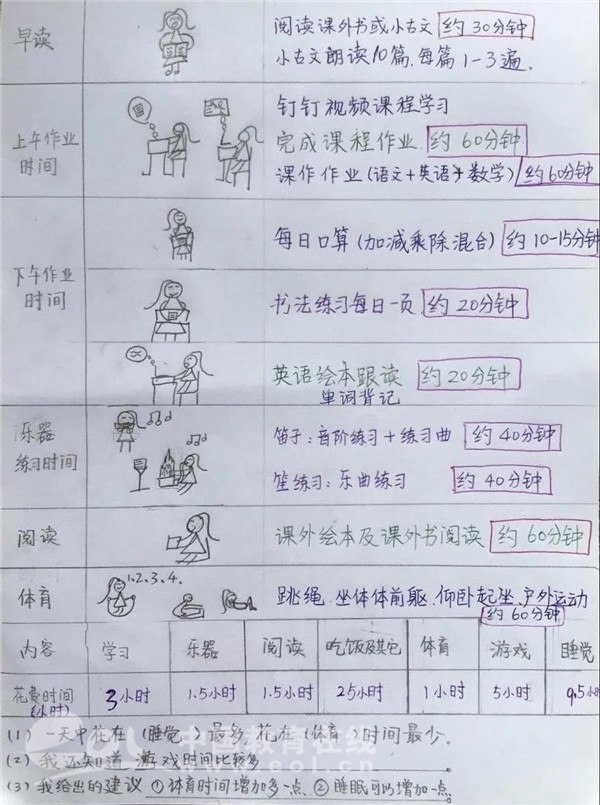 早读
阅读课外书或小古文 约30分钟
小古文朗读10篇.每篇1-3遍.
上午作业
时间
钉钉视频课程学习
完成课程作业. 约60分钟
课作作业(语文+英语+数学) 约60分钟
下午作业
时间
每日口算(加减乘除混合) 约10-15分钟
书法练习每日一页 约20分钟
英语绘本跟读 约20分钟
单词背记
乐器
练习时间
笛子:音阶练习+练习曲 约40分钟
笙练习:乐曲练习 约40分钟
阅读
课外绘本及课外书阅读 约60分钟
体育
1.2.3.4.
跳绳.坐体体前躯.仰卧起坐.户外运动
约60分钟
内容 学习 乐器 阅读 吃饭及其它 体育 游戏 睡觉
花费时间 3小时 1.5小时 1.5小时 2.5小时 1小时 5小时 9.5小时
(小时)
(1) 一天中花在(睡觉)最多 花在(体育)时间最少.
(2) 我还知道 游戏时间比较多
(3) 我给出的建议 ①体育时间增加多一点 ②睡眠可以增加一点.
eol 中国教育在线
www.eol.cn